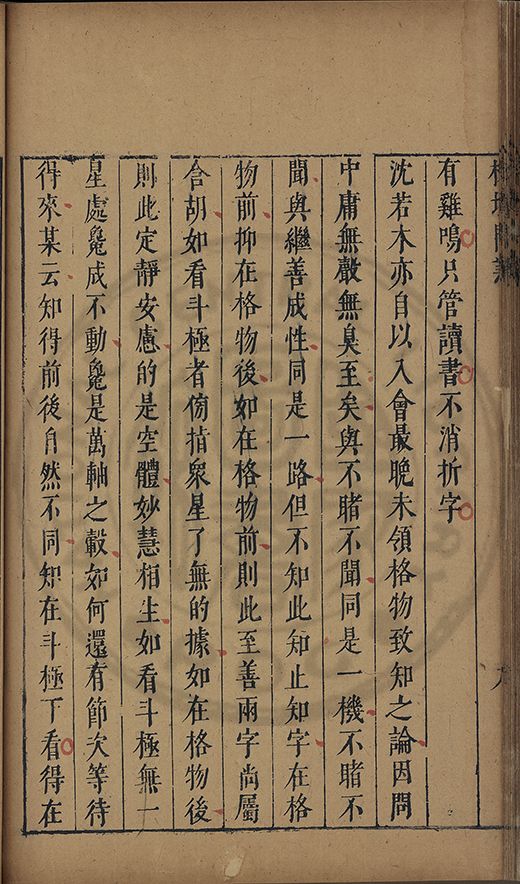 有雞鳴只管讀書不消折字
沈若木亦自以入會最晚未領格物致知之論因問
中庸無聲無臭至矣與不睹不聞同是一機不睹不
聞與繼善成性同是一路但不知此知止知字在格
物前抑在格物後如在格物前則此至善兩字尚屬
含胡如看斗極者傍指衆星了無的據如在格物後
則此定靜安慮的是空體妙慧相生如看斗極無一
星處毚成不動毚是萬軸之轂如何還有節次等待
得來某云知得前後自然不同知在斗極下看得在